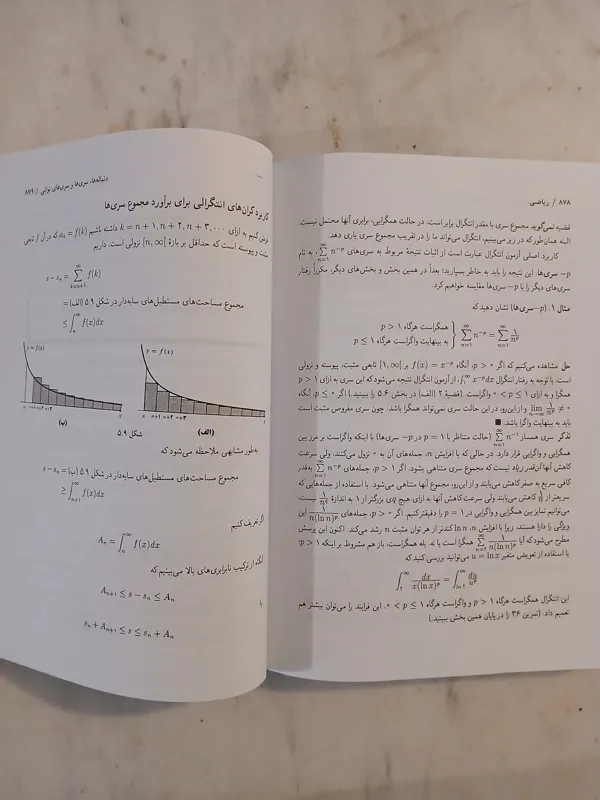 ۸۷۸ / ریاضی
قضیه نمی‌گوید مجموع سری با مقدار انتگرال برابر است، در حالت همگرایی، برابری آنها محتمل نیست.
البته همان‌طور که در زیر می‌بینیم، انتگرال می‌تواند ما را در تقریب مجموع سری یاری دهد.
کاربرد اصلی آزمون انتگرال عبارت است از اثبات نتیجهٔ مربوط به سری‌های $\sum_{n=1}^{\infty} n^{-p}$، به نام
p- سری‌ها. این نتیجه را باید به خاطر بسپارید؛ بعداً در همین بخش و بخش‌های دیگر، مکرراً رفتار
سری‌های دیگر را با p-سری‌ها مقایسه خواهیم کرد.
مثال ۱. (p-سری‌ها) نشان دهید که
$\sum_{n=1}^{\infty} n^{-p} = \sum_{n=1}^{\infty} \frac{1}{n^p}$ { همگراست هرگاه p > ۱
به بینهایت واگراست هرگاه p ≤ ۱
حل مشاهده می‌کنیم که اگر p > ۰، آنگاه $f(x) = x^{-p}$ بر [۱, ∞) تابعی مثبت، پیوسته و نزولی
است. با توجه به رفتار انتگرال $\int_1^{\infty} x^{-p}dx$، از آزمون انتگرال نتیجه می‌شود که این سری به ازای p > ۱
همگرا و به ازای ۰ < p ≤ ۱ واگراست. (قضیهٔ ۲ (الف) در بخش ۵.۶ را ببینید.) اگر p ≤ ۰، آنگاه
$\lim_{n\to\infty} \frac{1}{n^p} \neq 0$ و از این‌رو، در این حالت سری نمی‌تواند همگرا باشد. چون سری مفروض مثبت است
باید به بینهایت واگرا باشد. ■
تذکر سری همساز $\sum_{n=1}^{\infty} n^{-1}$ (حالت متناظر با p = ۱ در p- سری‌ها) با اینکه واگراست بر مرز بین
همگرایی و واگرایی قرار دارد. در حالی که با افزایش n، جمله‌های آن به ۰ نزول می‌کنند، ولی سرعت
کاهش آنها آن‌قدر زیاد نیست که مجموع سری متناهی شود. اگر p > ۱، جمله‌های $\sum_{n=1}^{\infty} n^{-p}$ به‌قدر
کافی سریع به صفر کاهش می‌یابند و از این‌رو، مجموع آنها متناهی می‌شود. با استفاده از جمله‌هایی که
سریعتر از $\frac{1}{n}$ کاهش می‌یابند ولی سرعت کاهش آنها به ازای هیچ q بزرگتر از ۱ به اندازهٔ $\frac{1}{n^q}$ نیست،
می‌توانیم تمایز بین همگرایی و واگرایی در p = ۱ را دقیقتر کنیم. اگر p > ۰، جمله‌های $\frac{1}{n(\ln n)^p}$ این
ویژگی را دارا هستند، زیرا با افزایش n، ln n کندتر از هر توان مثبت n رشد می‌کند. اکنون این پرسش
مطرح می‌شود که آیا $\sum_{n=2}^{\infty} \frac{1}{n(\ln n)^p}$ همگرا است یا نه. بله همگراست، باز هم مشروط بر اینکه p > ۱.
با استفاده از تعویض متغیر u = ln x می‌توانید بررسی کنید که
$\int_2^{\infty} \frac{dx}{x(\ln x)^p} = \int_{\ln 2}^{\infty} \frac{du}{u^p}$
این انتگرال همگراست هرگاه p > ۱ و واگراست هرگاه ۰ < p ≤ ۱. این فرایند را می‌توان بیشتر هم
تعمیم داد. (تمرین ۳۶ را در پایان همین بخش ببینید.)
دنباله‌ها، سری‌ها و سری‌های توانی / ۸۷۹
کاربرد کران‌های انتگرالی برای برآورد مجموع سری‌ها
فرض کنیم به ازای k = n + ۱, n + ۲, n + ۳, ... داشته باشیم $a_k = f(k)$، که در آن f تابعی
مثبت و پیوسته است که حداقل بر بازهٔ [n, ∞) نزولی است. داریم
$s - s_n = \sum_{k=n+1}^{\infty} f(k)$
= مجموع مساحت‌های مستطیل‌های سایه‌دار در شکل ۵.۹ (الف)
$\leq \int_n^{\infty} f(x)dx$
y = f(x)
n n+۱ n+۲ n+۳ x
(ب)
y = f(x)
n n+۱ n+۲ n+۳ x
(الف)
شکل ۵.۹
به‌طور مشابهی ملاحظه می‌شود که
$s - s_n$ = مجموع مساحت‌های مستطیل‌های سایه‌دار در شکل ۵.۹ (ب)
$\geq \int_{n+1}^{\infty} f(x)dx$
اگر تعریف کنیم
$A_n = \int_n^{\infty} f(x)dx$
آنگاه از ترکیب نابرابری‌های بالا می‌بینیم که
$A_{n+1} \leq s - s_n \leq A_n$
یا
$s_n + A_{n+1} \leq s \leq s_n + A_n$